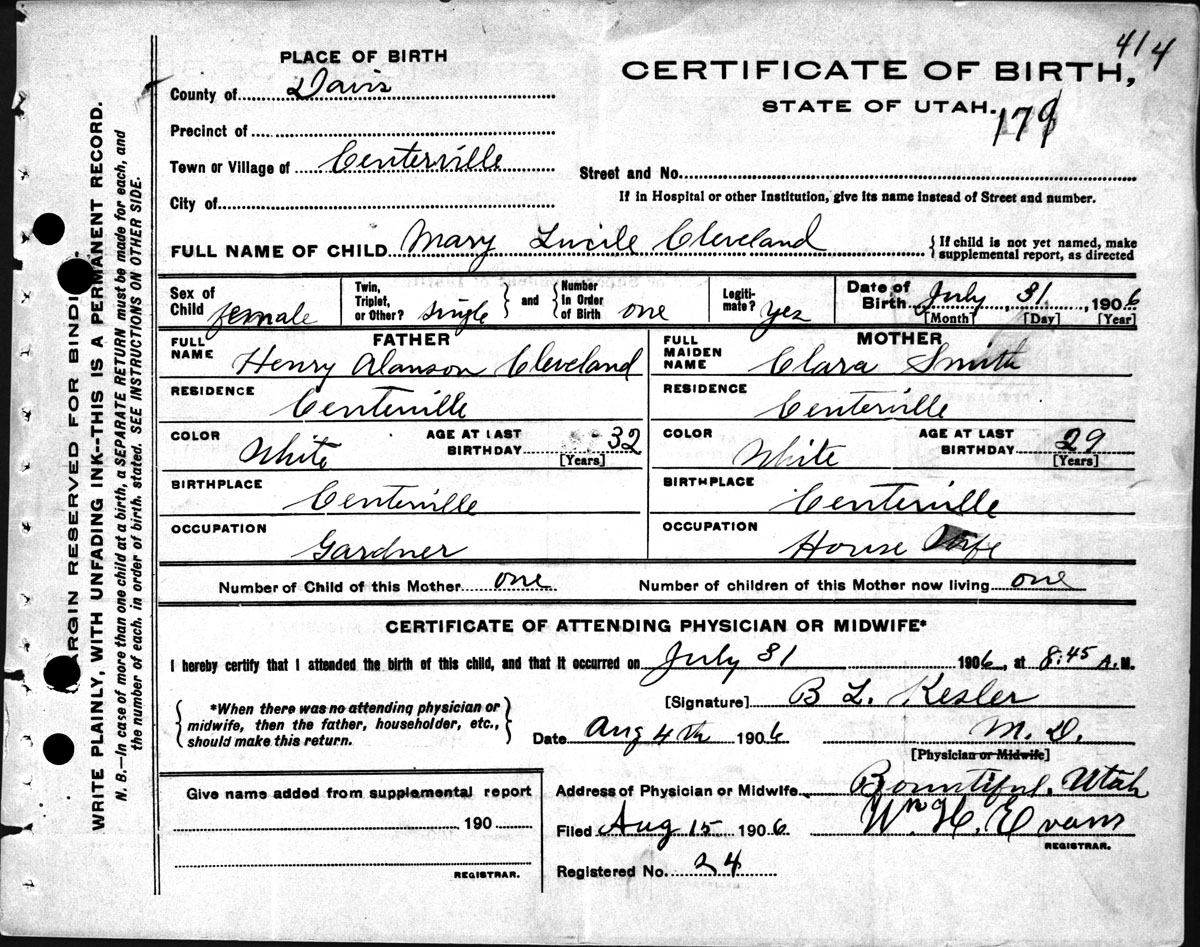 414
PLACE OF BIRTH
CERTIFICATE OF BIRTH,
County of Davis
STATE OF UTAH.
179
Precinct of
Town or Village of Centerville
Street and No.
If in Hospital or other Institution, give its name instead of Street and number.
City of
FULL NAME OF CHILD Mary Lucile Cleveland
{If child is not yet named, make supplemental report, as directed
Sex of Child female
Twin, Triplet, or Other? single } and { Number In Order of Birth one
Legiti-mate? Yes
Date of Birth July 31, 1906
[Month] [Day] [Year]
FATHER
FULL NAME Henry Alanson Cleveland
RESIDENCE Centerville
COLOR White
AGE AT LAST BIRTHDAY 32
[Years]
BIRTHPLACE Centerville
OCCUPATION Gardner
MOTHER
FULL MAIDEN NAME Clara Smith
RESIDENCE Centerville
COLOR White
AGE AT LAST BIRTHDAY 29
[Years]
BIRTHPLACE Centerville
OCCUPATION House Wife
Number of Child of this Mother one
Number of children of this Mother now living one
CERTIFICATE OF ATTENDING PHYSICIAN OR MIDWIFE*
I hereby certify that I attended the birth of this child, and that it occurred on July 31 1906, at 8:45 A.M.
{ *When there was no attending physician or midwife, then the father, householder, etc., should make this return. }
[Signature] B L. Kesler
Date Aug 4th 1906 M. D.
[Physician or Midwife]
Give name added from supplemental report
190
REGISTRAR.
Address of Physician or Midwife Bountiful, Utah
Filed Aug 15 1906. Wm H. Evans
REGISTRAR.
Registered No. 24
MARGIN RESERVED FOR BINDI
WRITE PLAINLY, WITH UNFADING INK--THIS IS A PERMANENT RECORD.
N. B.—In case of more than one child at a birth, a SEPARATE RETURN must be made for each, and
the number of each, in order of birth, stated. SEE INSTRUCTIONS ON OTHER SIDE.